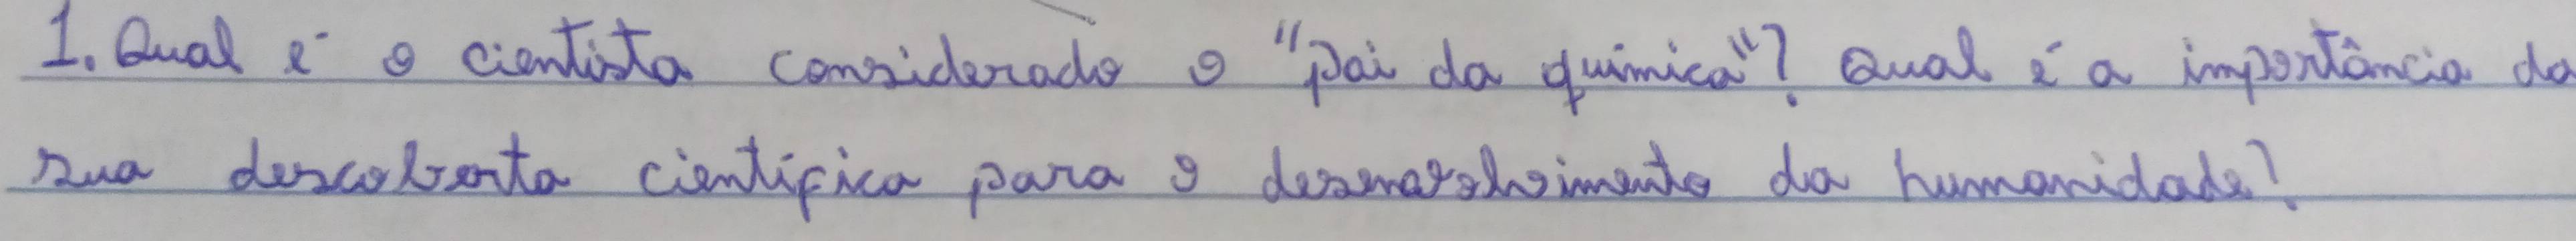 1. Qual é o cientista considerado o "pai da química"? Qual é a importância da
sua descoberta científica para o desenvolvimento da humanidade?